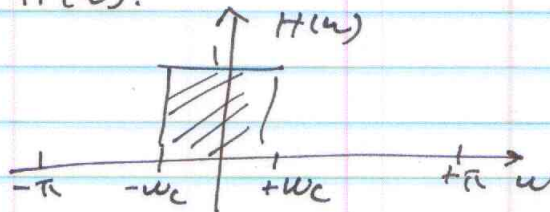 H(ω)
1
-π -ωc +ωc +π ω